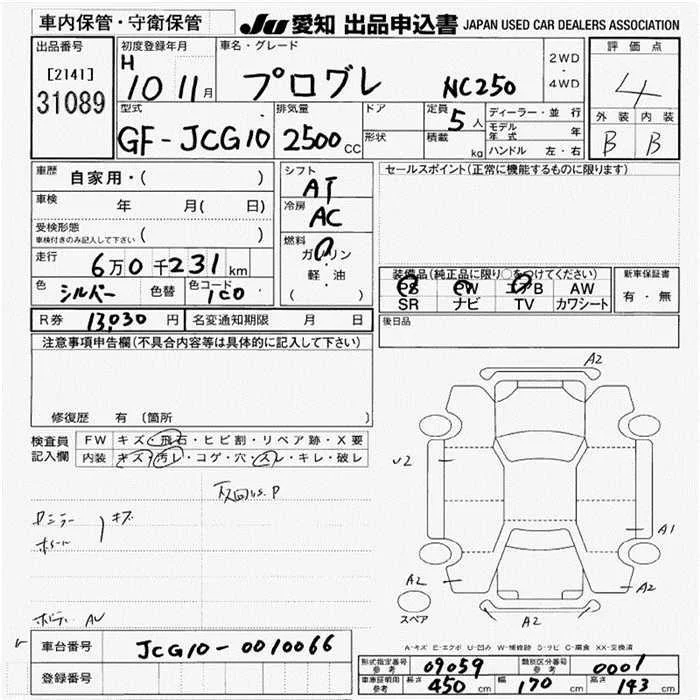 車内保管・守衛保管
JU 愛知 出品申込書 JAPAN USED CAR DEALERS ASSOCIATION
出品番号
[2141]
31089
初度登録年月
H 10 11月
車名・グレード
プログレ NC250
2WD
・
4WD
評価点
4
型式
GF-JCG10
排気量
2500cc
ドア
形状
定員 5人
積載 kg
ディーラー・並行
モデル年式 年
ハンドル 左・右
外装 内装
B B
車歴 自家用・( )
車検 年 月( 日)
受検形態
車検付きのみ記入して下さい ( )
走行 6万0千231km
色 シルバー 色替 色コード 1C0
シフト
AT
冷房
AC
燃料
ガソリン
・
軽油
( )
セールスポイント(正常に機能するものに限ります)
装備品(純正品に限り○をつけてください)
PS PW エアB AW
SR ナビ TV カワシート
新車保証書
有・無
R券 13,030円 名変通知期限 月 日
後日品
注意事項申告欄(不具合内容等は具体的に記入して下さい)
修復歴 有 (箇所 )
検査員
記入欄
FW キズ・飛石・ヒビ割・リペア跡・X要
内装 キズ・汚レ・コゲ・穴・スレ・キレ・破レ
キズ
A2
A1
A2
A2
A2
スペア
A-キズ E-エクボ U-凹み W-補修跡 S-サビ C-腐食 XX-交換済
車台番号 JCG10-0010066
登録番号
形式指定番号 参考 09059 類別区分番号 参考 0001
車庫証明用 参考 長さ 450cm 幅 170cm 高さ 143cm